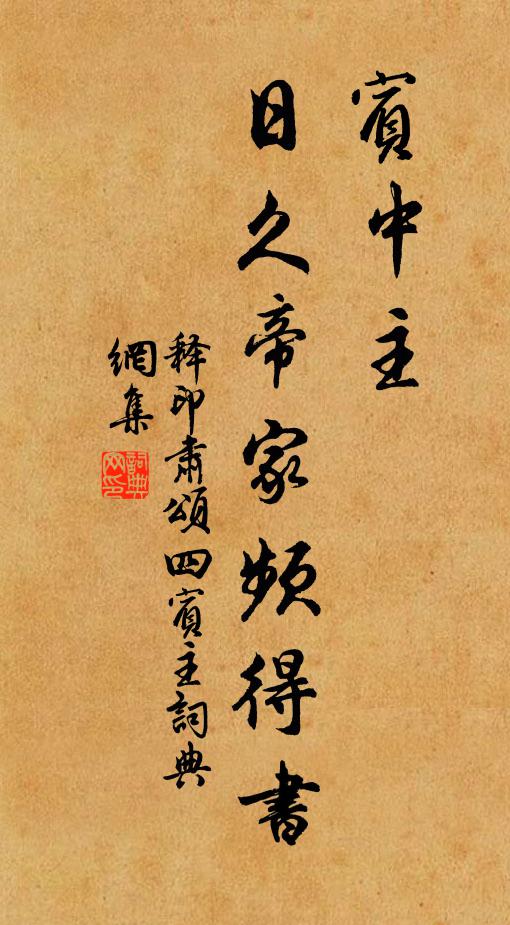 賓中主
日久帝家頻得書
释印肅頌四賓主詞典
網集
詞典網印